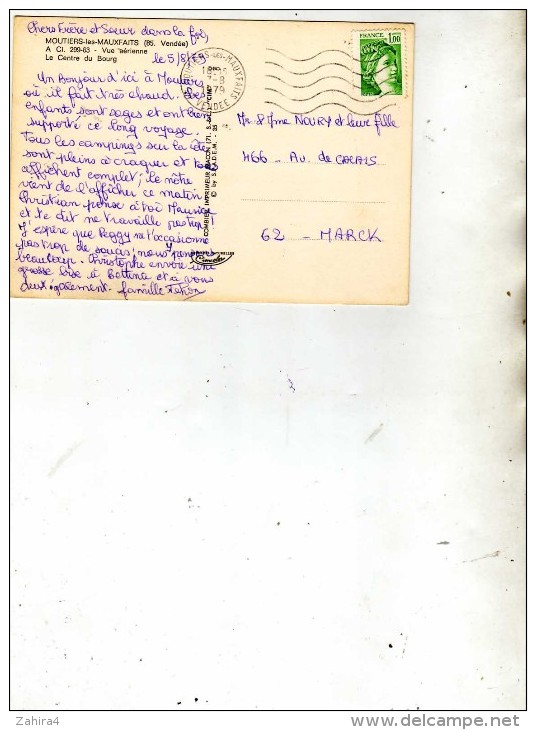 Chers Frère et Soeur dans la foi,
MOUTIERS-les-MAUXFAITS (85. Vendée)
A CI. 299-63 - Vue aérienne
Le Centre du Bourg
le 5/8/79
Un Bonjour d'ici à Moutiers
où il fait très chaud. Les
enfants sont sages et ont bien
supporté ce long voyage.
Tous les campings sur la côte
sont pleins à craquer et tous
affichent complet; le nôtre
vient de l'afficher ce matin.
Christian pense à toi Maurice
et te dit ne travaille pas trop!
J'espère que Peggy ne t'occasionne
pas trop de soucis! nous y pensons
beaucoup. Christophe envoie une
grosse bise à Bettina et à vous
deux également. famille
MOUTIERS-LES-MAUXFAITS
VENDEE
FRANCE
1,00
COMBIER IMPRIMEUR MACON
Mr & Mme NOURY et leur fille
466 - Av. de CALAIS
62 - MARCK
Zahira4
delcampe.net